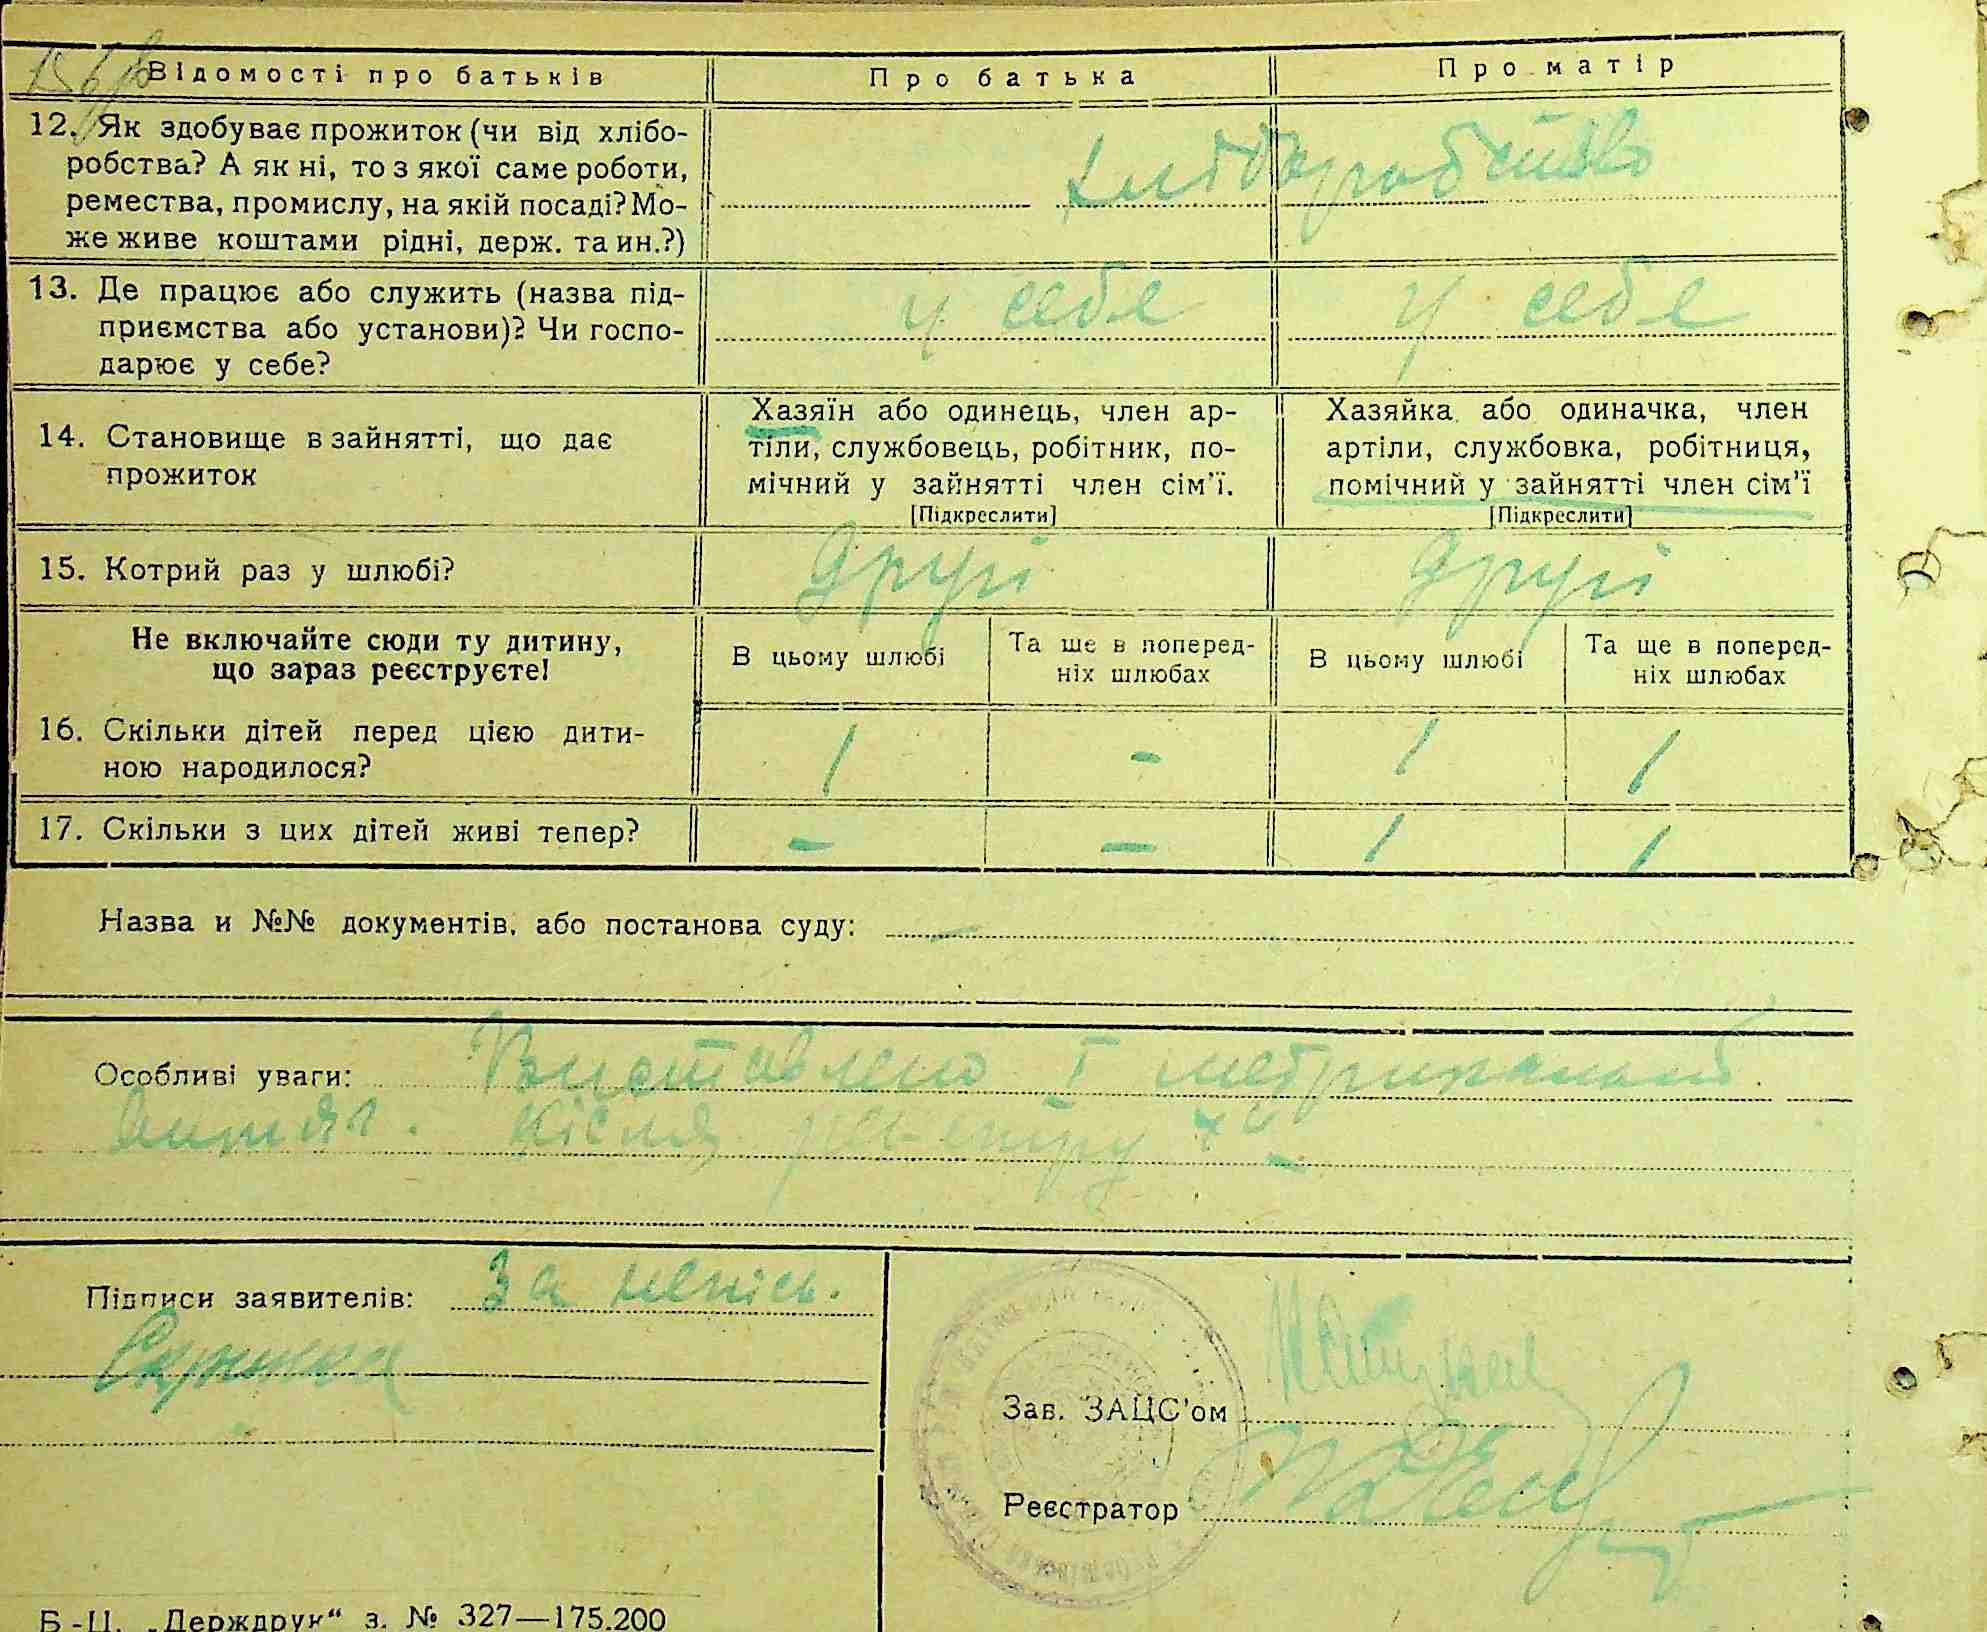 Відомості про батьків
Про батька
Про матір
12. Як здобуває прожиток (чи від хлібо-
робства? А як ні, то з якої саме роботи,
ремества, промислу, на якій посаді? Мо-
же живе коштами рідні, держ. та ин.?)
хліборобство
13. Де працює або служить (назва під-
приємства або установи)? Чи госпо-
дарює у себе?
у себе
у себе
14. Становище в зайнятті, що дає
прожиток
Хазяїн або одинець, член ар-
тіли, службовець, робітник, по-
мічний у зайнятті член сім'ї.
[Підкреслити]
Хазяйка або одиначка, член
артіли, службовка, робітниця,
помічний у зайнятті член сім'ї
[Підкреслити]
15. Котрий раз у шлюбі?
другі
другі
Не включайте сюди ту дитину,
що зараз реєструєте!
В цьому шлюбі
Та ще в поперед-
ніх шлюбах
В цьому шлюбі
Та ще в поперед-
ніх шлюбах
16. Скільки дітей перед цією дити-
ною народилося?
1
-
1
1
17. Скільки з цих дітей живі тепер?
-
-
1
1
Назва и №№ документів, або постанова суду: -
Особливі уваги: Виставлено І
витяг.
Підписи заявителів: За непісь.
Зав. ЗАЦС'ом
Реєстратор
Б-Ц. „Держдрук“ з. № 327—175.200